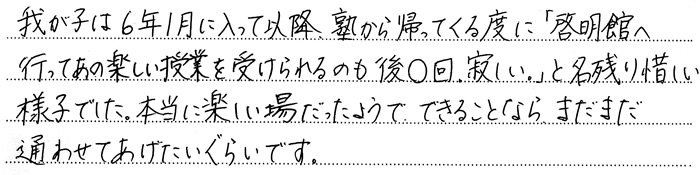 我が子は6年1月に入って以降、塾から帰ってくる度に「啓明館へ
行ってあの楽しい授業を受けられるのも後〇回。寂しい。」と名残り惜しい
様子でした。本当に楽しい場だったようで できることなら まだまだ
通わせてあげたいぐらいです。